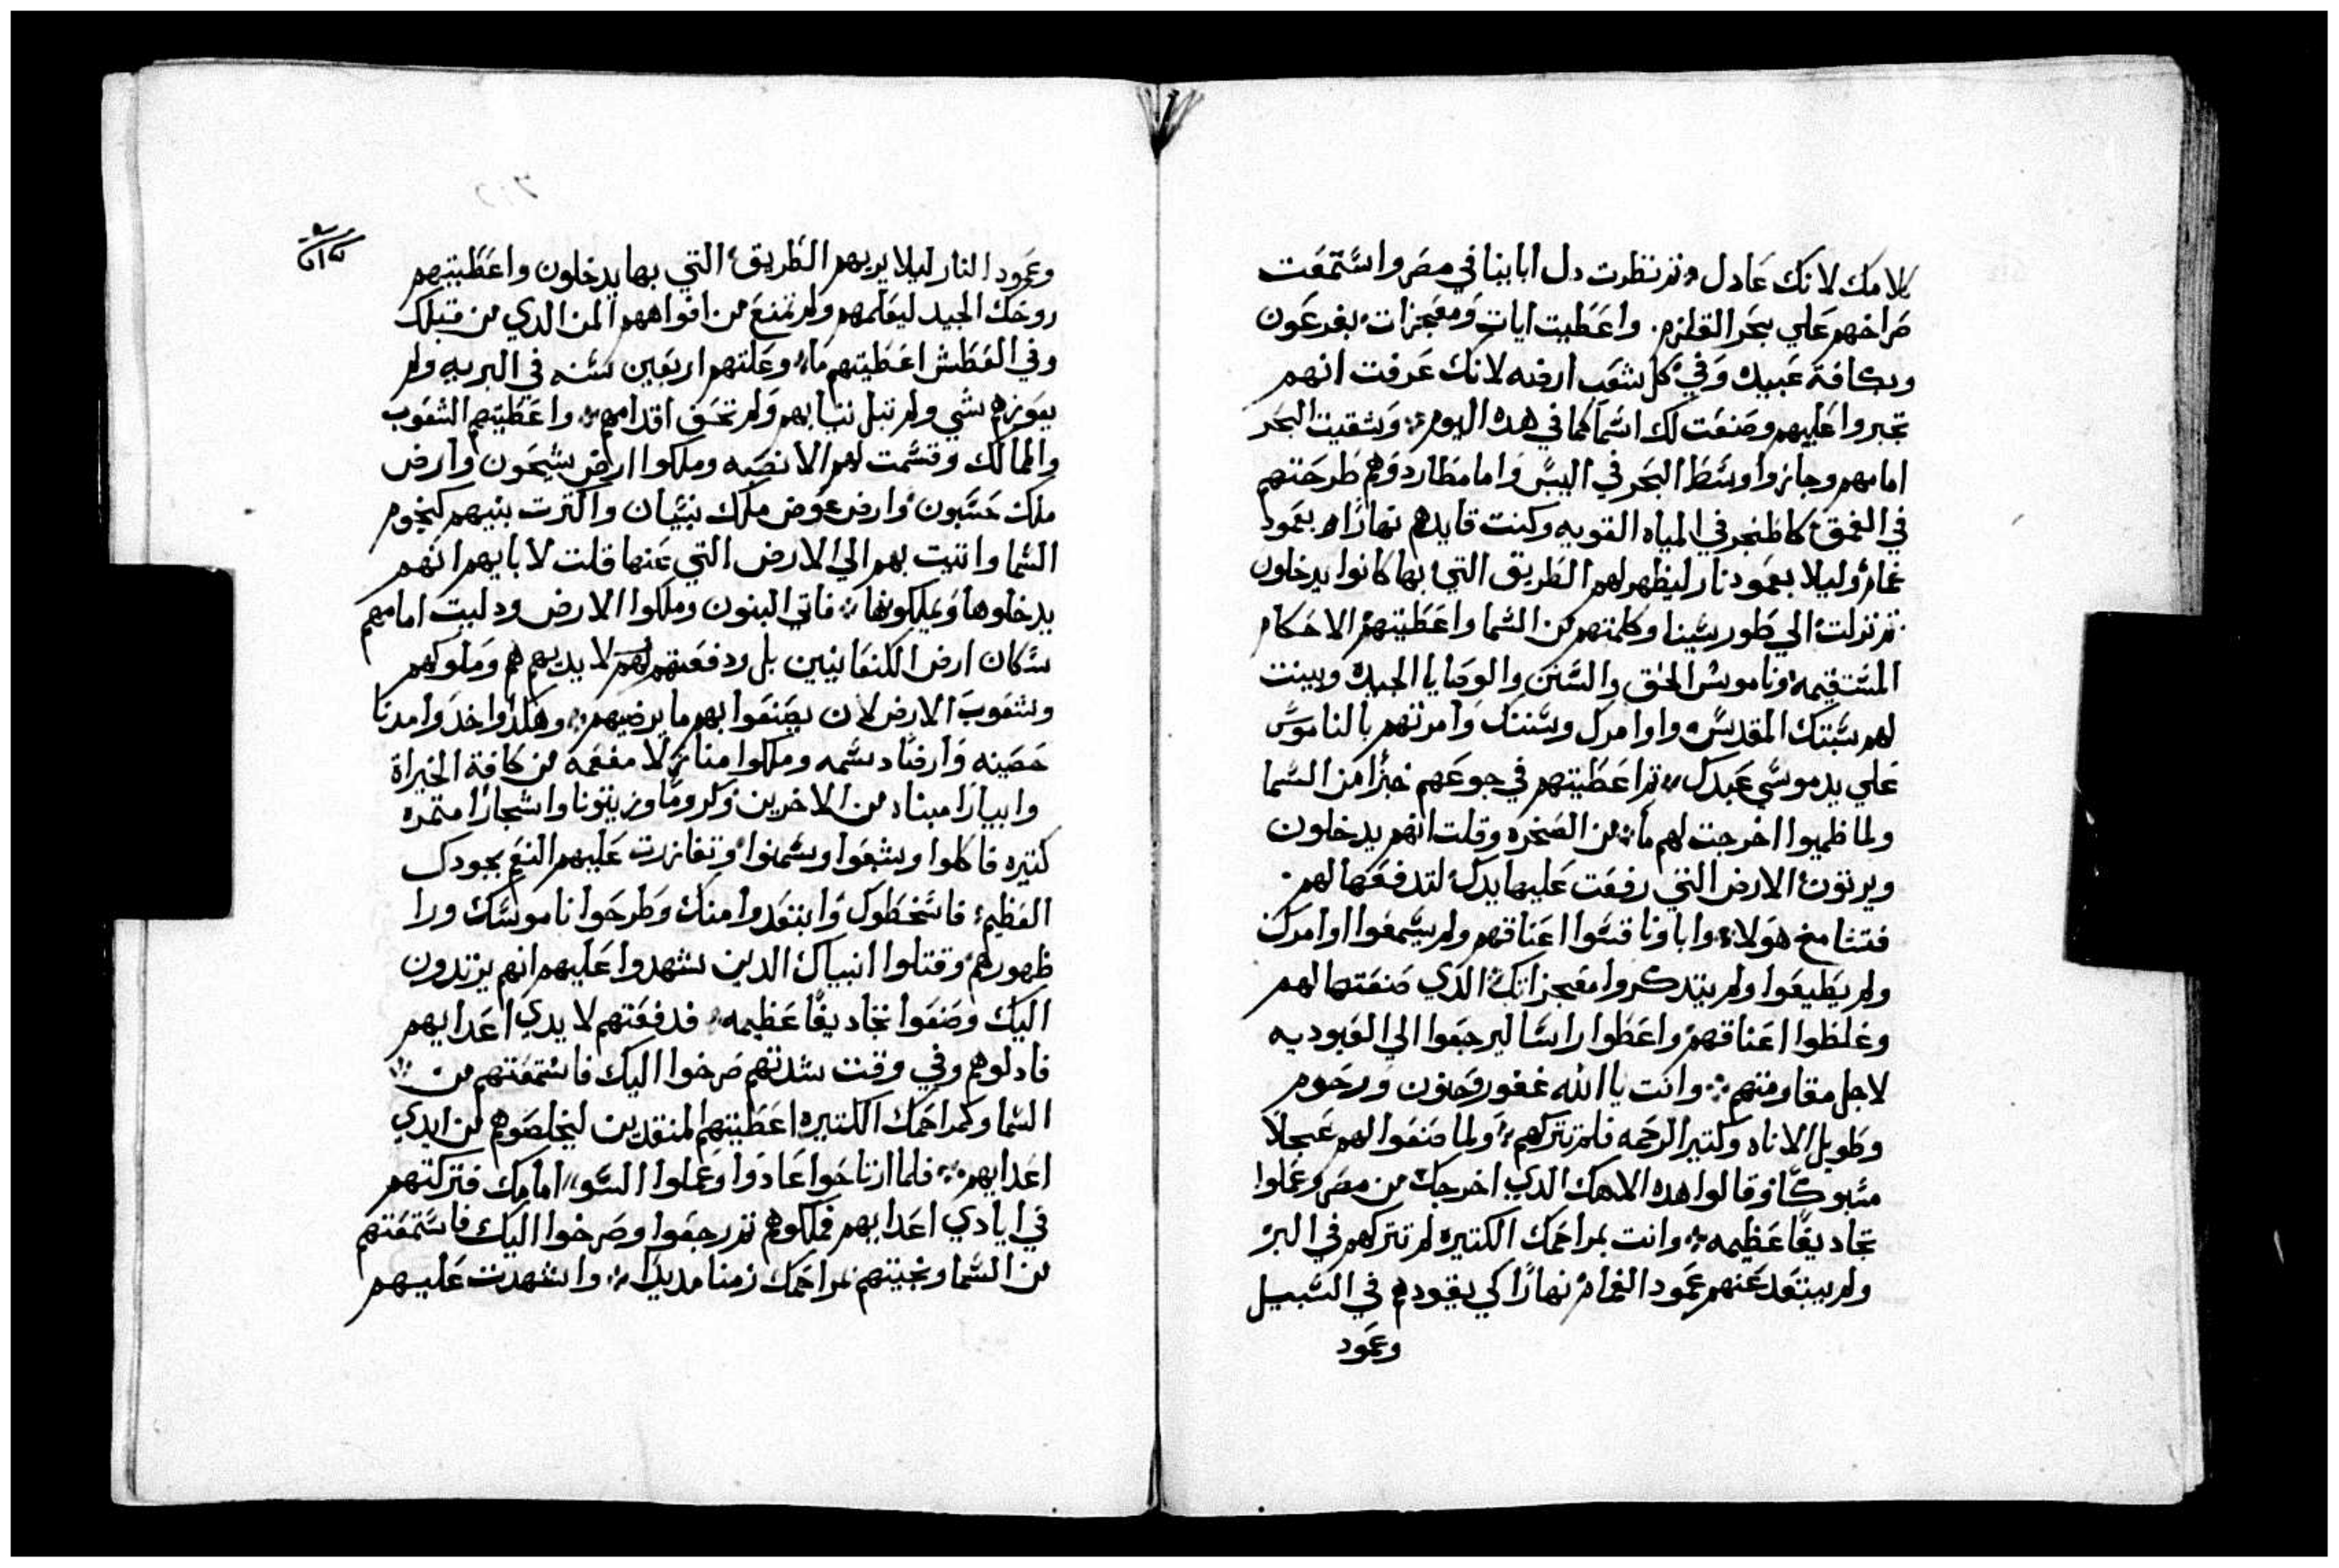 كلامك لانك عادل ثم نظرت دل ابايينا في مصر واستمعت
صراخهم علي بحر القلزم. واعطيت ايات ومعجزات بفرعون
وبكافة عبيده وفي كل شعب ارضه لانك عرفت انهم
تجبروا عليهم وصنعت لك اسما كما في هده اليوم وشقيت البحر
امامهم وجازوا وسط البحر في اليبس واما مطاردوهم طرحتهم
في العمق كالحجر في المياه القويه وكنت قايدهم نهارا بعمود
غمام وليلا بعمود نار ليظهر لهم الطريق التي بها كانوا يدخلون
ثم نزلت الي طور سينا وكلمتهم من السما واعطيتهم الاحكام
المستقيمه وناموس الحق والسنن والوصايا الجيده وبينت
لهم سبتك المقدس واوامرك وسننك وامرتهم بالناموس
علي يد موسي عبدك ثم اعطيتهم في جوعهم خبزا من السما
ولما ظميوا اخرجت لهم ما من الصخره وقلت انهم يدخلون
ويرتون الارض التي رفعت عليها يدك لتدفعها لهم.
فتشامخ هولا واباونا قسوا اعناقهم ولم يسمعوا اوامرك
ولم يطيعوا ولم يتدكروا معجزاتك الدي صنعتها لهم
وغلظوا اعناقهم واعطوا راسا ليرجعوا الي العبوديه
لاجل مقاومتهم وانت يا الله غفور وحنون ورحوم
وطويل الاناه وكتير الرحمه فلم تتركهم ولما صنعوا لهم عجلا
مسبوكا وقالوا هده الاهك الدي اخرجك من مصر وعملوا
تجاديفا عظيمه وانت بمراحمك الكتيره لم تتركهم في البر
ولم يبتعد عنهم عمود الغمام نهارا كي يقودهم في السبيل
وعمود
وعمود النار ليلا يريهم الطريق التي بها يدخلون واعطيتهم
روحك الجيد ليعلمهم ولم تمنع من افواههم المن الدي من قبلك
وفي العطش اعطيتهم ما وعلتهم اربعين سنه في البريه ولم
يعوزهم شي ولم تبل تيابهم ولم تحق اقدامهم واعطيتهم الشعوب
والممالك وقسمت لهم الانصبه وملكوا ارض شيحون وارض
ملك حسبون وارض عوض ملك بيسان واكترت بنيهم كنجوم
السما واتيت بهم الي الارض التي عنها قلت لابايهم انهم
يدخلوها ويملكونها فاتي البنون وملكوا الارض ودليت امامهم
سكان ارض الكنعانيين بل ودفعتهم لهم لايديهم هم وملوكهم
وشعوب الارض لان يصنعوا بهم ما يرضيهم وهكدا اخدوا مدنا
حصينه وارضا دسمه وملكوا منازلا مفعمه من كافة الخيراة
وابيارا مبناه من الاخرين وكروما وزيتونا واشجارا متمره
كتيره فاكلوا وشبعوا وسمنوا وتغازرت عليهم النعم بجودك
العظيم فاسخطوك وابتعدوا منك وطرحوا ناموسك ورا
ظهورهم وقتلوا انبياك الدين شهدوا عليهم انهم يرتدون
اليك وصنعوا تجاديفا عظيمه فدفعتهم لايدي اعدايهم
فادلوهم وفي وقت شدتهم صرخوا اليك فاستمعتهم من
السما وكمراحمك الكتيره اعطيتهم المنقدين ليخلصوهم من ايدي
اعدايهم فلما ارتاحوا عادوا وعملوا السو امامك فتركتهم
في ايادي اعدايهم فملكوهم ثم رجعوا وصرخوا اليك فاستمعتهم
من السما ونجيتهم بمراحمك زمنا مديدا واشهدت عليهم